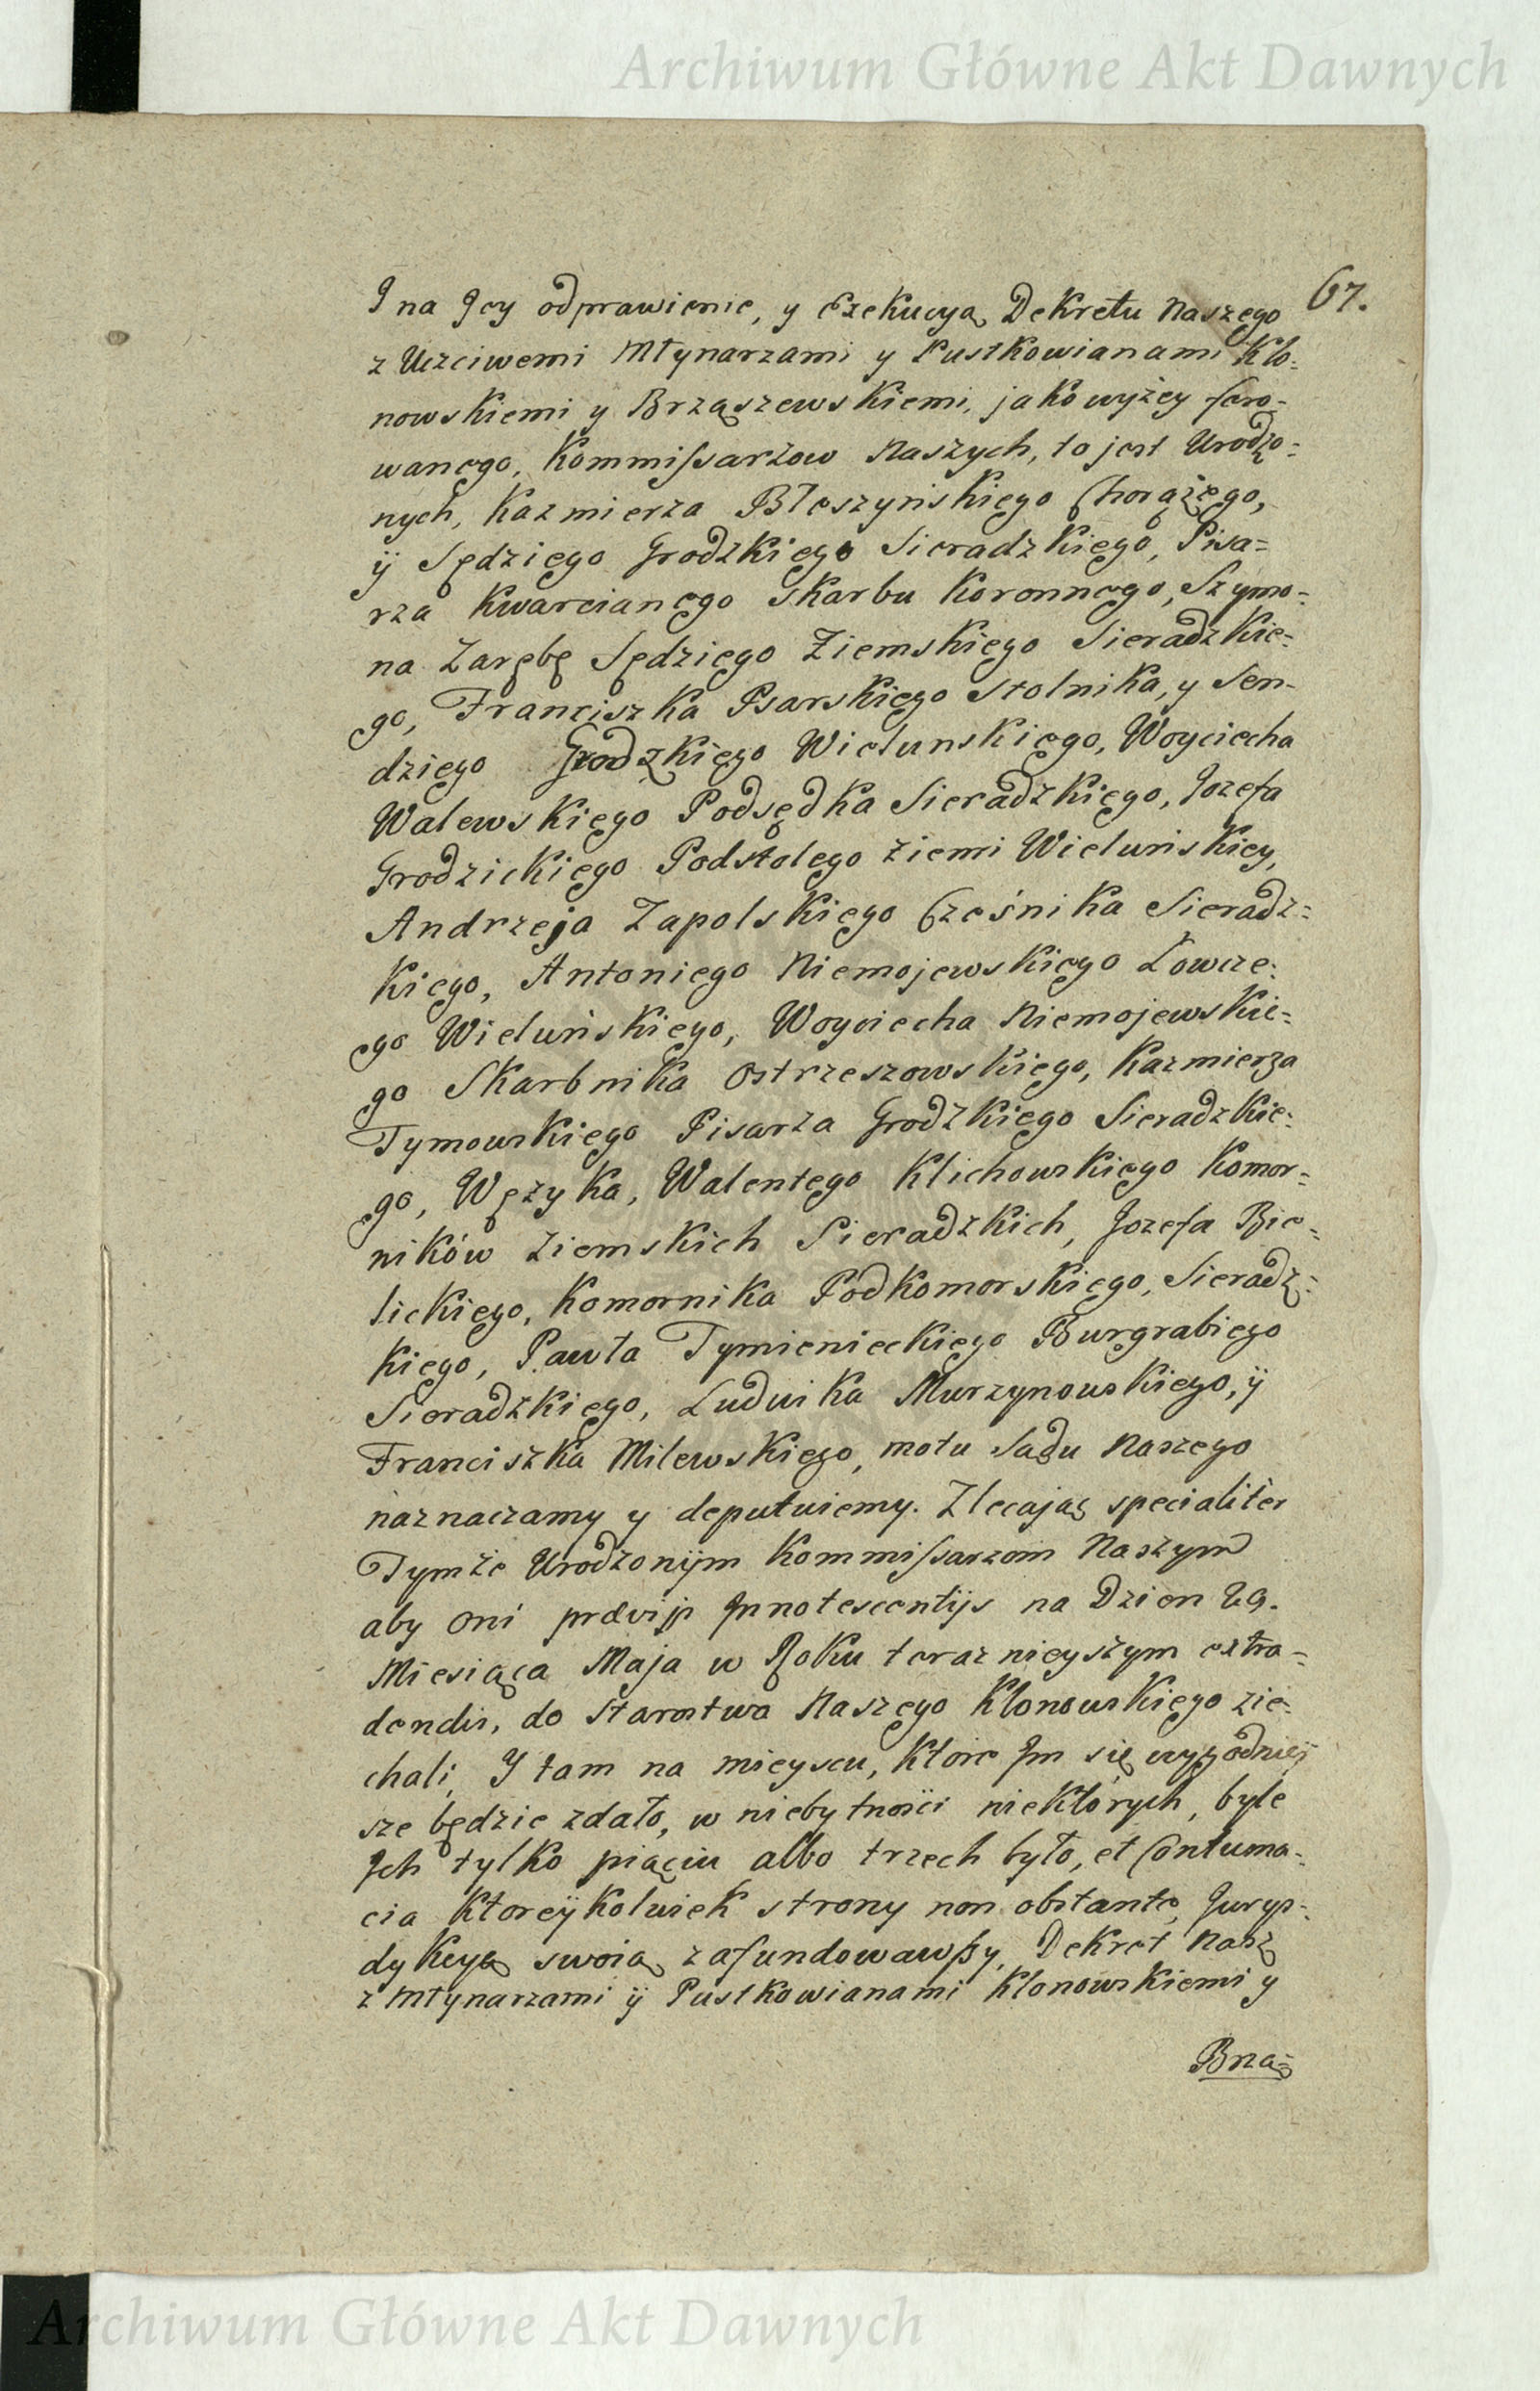 Archiwum Główne Akt Dawnych
67.
I na Jey odprawienie, y Exekucyą Dekretu Naszego
z Uczciwemi Młynarzami y Pustkowianami Klo-
nowskiemi y Brząszewskiemi, jako wyżey fero-
wanego, Kommissarzow Naszych, to jest Urodzo-
nych, Kazmierza Błeszyńskiego Chorążego,
ÿ Sędziego Grodzkiego Sieradzkiego, Pisa-
rza Kwarcianego Skarbu Koronnego, Szymo-
na Zarębę Sędziego Ziemskiego Sieradzkie-
go, Franciszka Psarskiego Stolnika, y Sen-
dziego Grodzkiego Wielunskiego, Woyciecha
Walewskiego Podsędka Sieradzkiego, Jozefa
Grodzickiego Podstolego ziemi Wieluńskiey,
Andrzeja Zapolskiego Cześnika Sieradz-
kiego, Antoniego Niemojewskiego Łowcze-
go Wieluńskiego, Woyciecha Niemojewskie-
go Skarbnika Ostrzeszowskiego, Kazmierza
Tymowskiego Pisarza Grodzkiego Sieradzkie-
go, Wężyka, Walentego Klichowskiego Komor-
ników Ziemskich Sieradzkich, Jozefa Bie-
lickiego, Komornika Podkomorskiego, Sieradz-
kiego, Pawła Tymienieckiego Burgrabiego
Sieradzkiego, Ludwika Murzynowskiego, ÿ
Franciszka Milewskiego, motu Sądu Naszego
naznaczamy y deputuiemy. Zlecając specialiter
Tymże Urodzonÿm Kommissarzom Naszym
aby oni prævijs Innotescentijs na Dzien 29.
Miesiąca Maja w Roku teraznieyszym extra-
dendis, do Starostwa Naszego Klonowskiego zie-
chali, Y tam na mieyscu, które Im się wygodniey
sze będzie zdało, w niebytnosci niektórych, byle
Ich tylko pięciu albo trzech było, et Contuma-
cia ktoreÿkolwiek strony non obstante, Jurys-
dykcyą swoią zafundowawszy, Dekret Nasz
z Młynarzami ÿ Pustkowianami Klonowskiemi y
Brzą-
Archiwum Główne Akt Dawnych